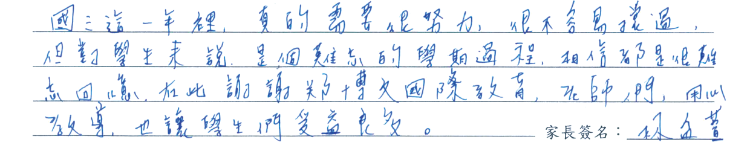 國三這一年裡,真的需要很努力,很不容易撐過,
但對學生來說,是個難忘的學期過程,相信都是很難
忘回憶,在此謝謝 博文國際教育,在師們,用心
教導,也讓學生們受益良多。 家長簽名:林